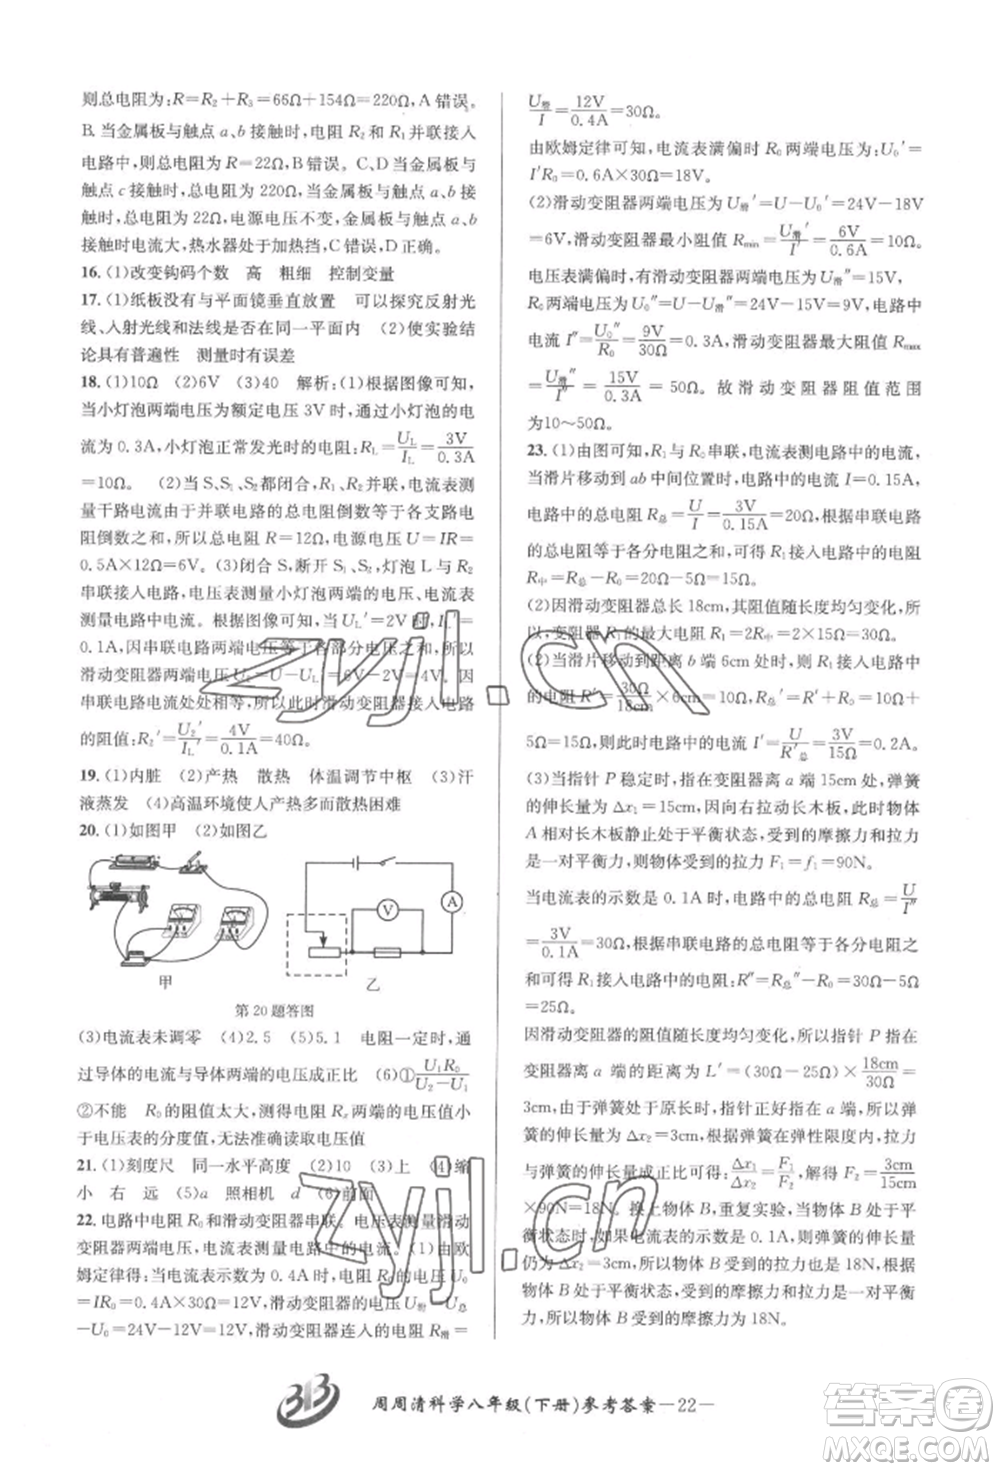 则总电阻为:R=R₂+R₃=66Ω+154Ω=220Ω,A错误。
B.当金属板与触点a、b接触时,电阻R₂和R₁并联接入
电路中,则总电阻为R=22Ω,B错误。C、D当金属板与
触点c接触时,总电阻为220Ω,当金属板与触点a、b
接触时,总电阻为22Ω,电源电压不变,金属板与a、b
接触时电流大,热水器处于加热挡,C错误,D正确。
16.(1)改变钩码个数 高 粗细 控制变量
17.(1)纸板没有与平面镜垂直放置 可以探究反射光
线、入射光线和法线是否在同一平面内 (2)使实验结
论具有普遍性 测量时有误差
18.(1)10Ω (2)6V (3)40 解析:(1)根据图像可知,
当小灯泡两端电压为额定电压3V时,通过小灯泡的电
流为0.3A,小灯泡正常发光时的电阻:R_L=U_L/I_L=3V/0.3A
=10Ω。 (2)当S、S₁、S₂都闭合,R₁、R₂并联,电流表测
量干路电流由于并联电路的总电阻倒数等于各支路电
阻倒数之和,所以总电阻为10Ω,电源电压U=IR=
0.5A×12Ω=6V。(3)闭合S,断开S₁、S₂,灯泡L与R₂
串联接入,电压表测量小灯泡两端的电压、电流表
测量电路中电流。由图可知当U_L′=2V时,I_L′=
0.1A,因串联电路两端电压等于各部分电压之和,所以
滑动变阻器两端电压U₂′=U-U_L′=6V-2V=4V,因
串联电路电流处处相等,所以此时滑动变阻器接入电路
的阻值:R₂′=U₂′/I_L′=4V/0.1A=40Ω。
19.(1)内脏 (2)产热 散热 体温调节中枢 (3)汗
液蒸发 (4)高温环境使人产热多而散热困难
20.(1)如图甲 (2)如图乙
V
A
甲
乙
第20题答图
(3)电流表未调零 (4)2.5 (5)5.1 电阻一定时,通
过导体的电流与导体两端的电压成正比 (6)①U₁R₀/(U₂-U₁)
②不能 R₀的阻值太大,测得电阻Rₓ两端的电压小
于电压表的分度值,无法准确读取电压值
21.(1)刻度尺 同一水平高度 (2)10 (3)上 (4)缩
小 右 远 (5)a 照相机 d (6)前面
22.电路中电阻R₀和滑动变阻器串联。电压表测量滑动
变阻器两端电压,电流表测量电路中的电流。(1)由欧
姆定律得:当电流表示数为0.4A时,R₀两端的电压U₀
=IR₀=0.4A×30Ω=12V,滑动变阻器的电压U滑=U
-U₀=24V-12V=12V,滑动变阻器连入的电阻R滑=
U滑/I=12V/0.4A=30Ω。
由欧姆定律可知,电流表满偏时R₀两端电压为:U₀′=
I′R₀=0.6A×30Ω=18V。
(2)滑动变阻器两端电压为U滑′=U-U₀′=24V-18V
=6V,滑动变阻器最小阻值Rmin=U滑′/I′=6V/0.6A=10Ω。
电压表满偏时:有滑动变阻器两端电压为U滑″=15V,
R₀两端电压为U₀″=U-U滑″=24V-15V=9V,电路中
电流I″=U₀″/R₀=9V/30Ω=0.3A,滑动变阻器最大阻值Rmax
=U滑″/I″=15V/0.3A=50Ω。故滑动变阻器阻值范围
为10~50Ω。
23.(1)由图可知,R₁与R₀串联,电流表测电路中的电流,
当滑片移动到ab中间位置时,电路中的电流I=0.15A,
电路中的总电阻R总=U/I=3V/0.15A=20Ω,根据串联电路
的总电阻等于各分电阻之和可知R₁接入电路中的电阻
R中=R总-R₀=20Ω-5Ω=15Ω。
(2)因滑动变阻器总长18cm,其阻值随长度均匀变化,所
以,变阻器R₁的最大电阻R₁=2R中=2×15Ω=30Ω。
(2)当滑片移动到距离b端6cm处时,则R₁接入电路中
的电阻R′=30Ω/18cm×6cm=10Ω,R′总=R′+R₀=10Ω+
5Ω=15Ω,则此时电路中的电流I′=U/R′总=3V/15Ω=0.2A。
(3)当指针P稳定时,在变阻器a端15cm处,弹簧
的伸长量为Δx₁=15cm,因向右拉动长木板,此时物体
A相对长木板静止处于平衡状态,受到的摩擦力和拉力
是一对平衡力,则物体受到的拉力F₁=f₁=90N。
当电流表的示数是0.1A时,电路中的总电阻R总=U/I″
=3V/0.1A=30Ω,根据串联电路的总电阻等于各分电阻之
和可得R₁接入电路中的电阻:R″=R总″-R₀=30Ω-5Ω
=25Ω。
因滑动变阻器的阻值随长度均匀变化,所以指针P指在
变阻器a端的距离为L′=(30Ω-25Ω)×18cm/30Ω=
3cm,由于弹簧处于原长时,指针正好指在a端,所以弹簧
的伸长量为Δx₂=3cm,根据弹簧在弹性限度内,受到的拉力
与弹簧的伸长量成正比可得:Δx₂/Δx₁=F₂/F₁,解得F₂=3cm/15cm
×90N=18N。换上物体B,重复实验,当物体B处于平
衡状态时,如果电流表的示数是0.1A,则弹簧的伸长量
仍为Δx₂=3cm,则弹簧对物体B的拉力仍为18N,因
物体B处于平衡状态,受到的摩擦力和拉力是一对平衡
力,所以物体B受到的摩擦力为18N。
zyjl.cn
zyjl.cn
周周清科学八年级(下册)参考答案—22—
答案圈
MXQE.COM